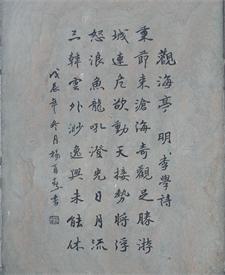 觀海亭 明·李學詩
秉節来滄海奇觀足勝游
城連危欲動天接勢將浮
怒浪魚龍吼澄光日月流
三韓雲外渺逸興未能休
戊辰年冬月楊書